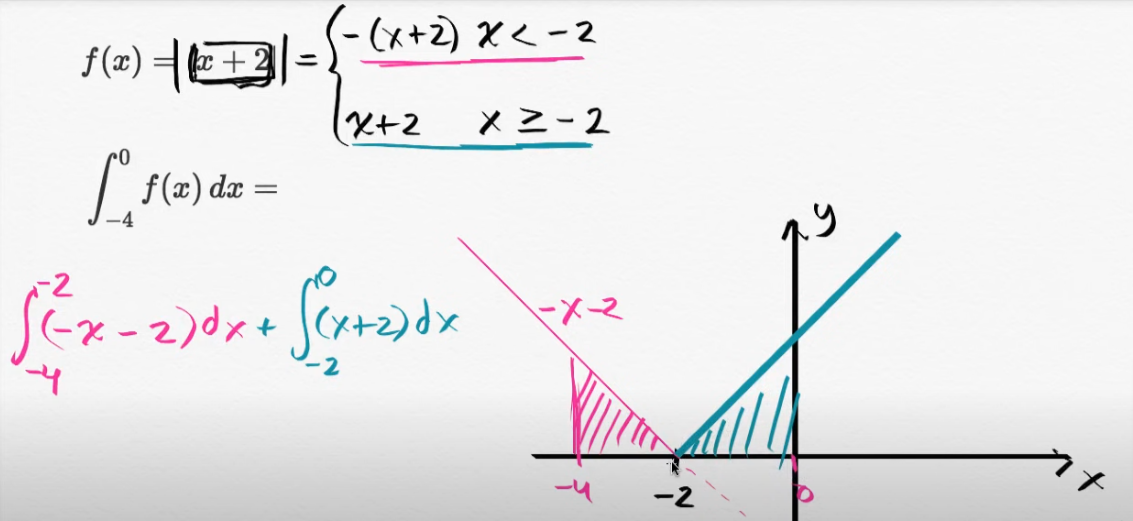 f(x) = |x + 2| = { -(x+2) x < -2
x+2 x ≥ -2
∫_{-4}^{0} f(x) dx =
∫_{-4}^{-2} (-x - 2) dx + ∫_{-2}^{0} (x+2) dx
y
-x-2
-4 -2 0 x